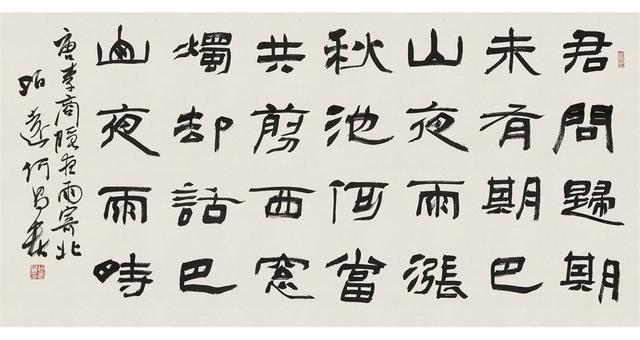 君問歸期
未有期巴
山夜雨漲
秋池何當
共剪西窓
燭却話巴
山夜雨時
唐李商隱夜雨寄北
何昌